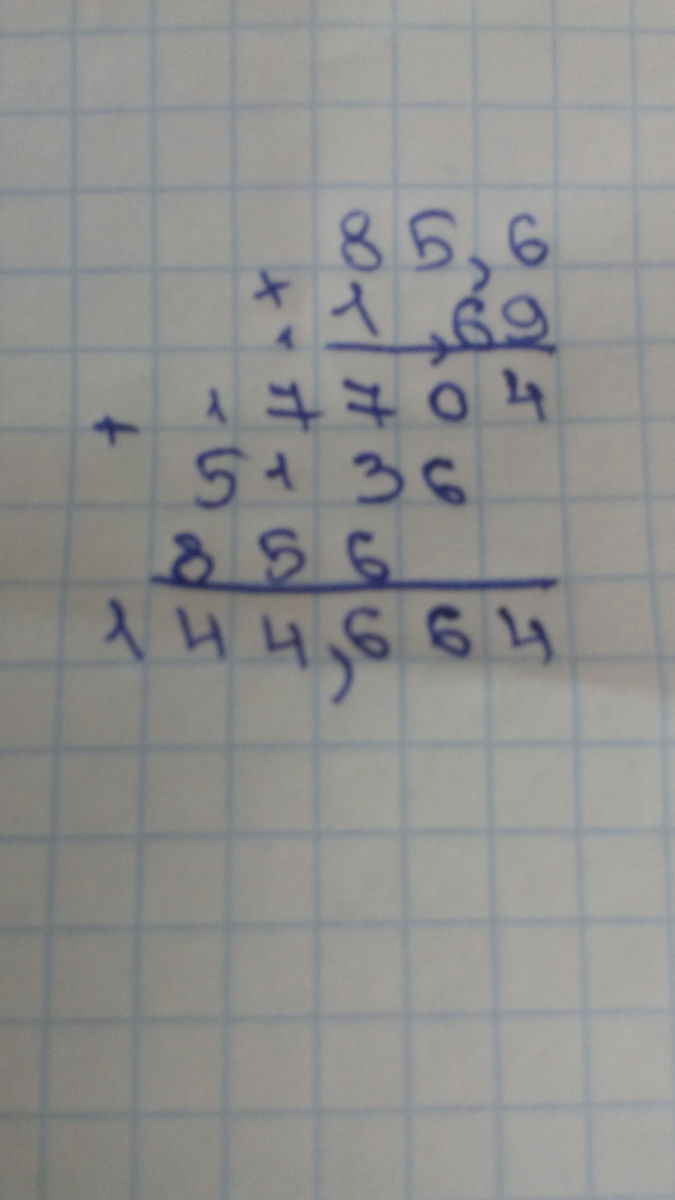 85,6
× 1,69
1
1 7704
+
5136
856
144,664